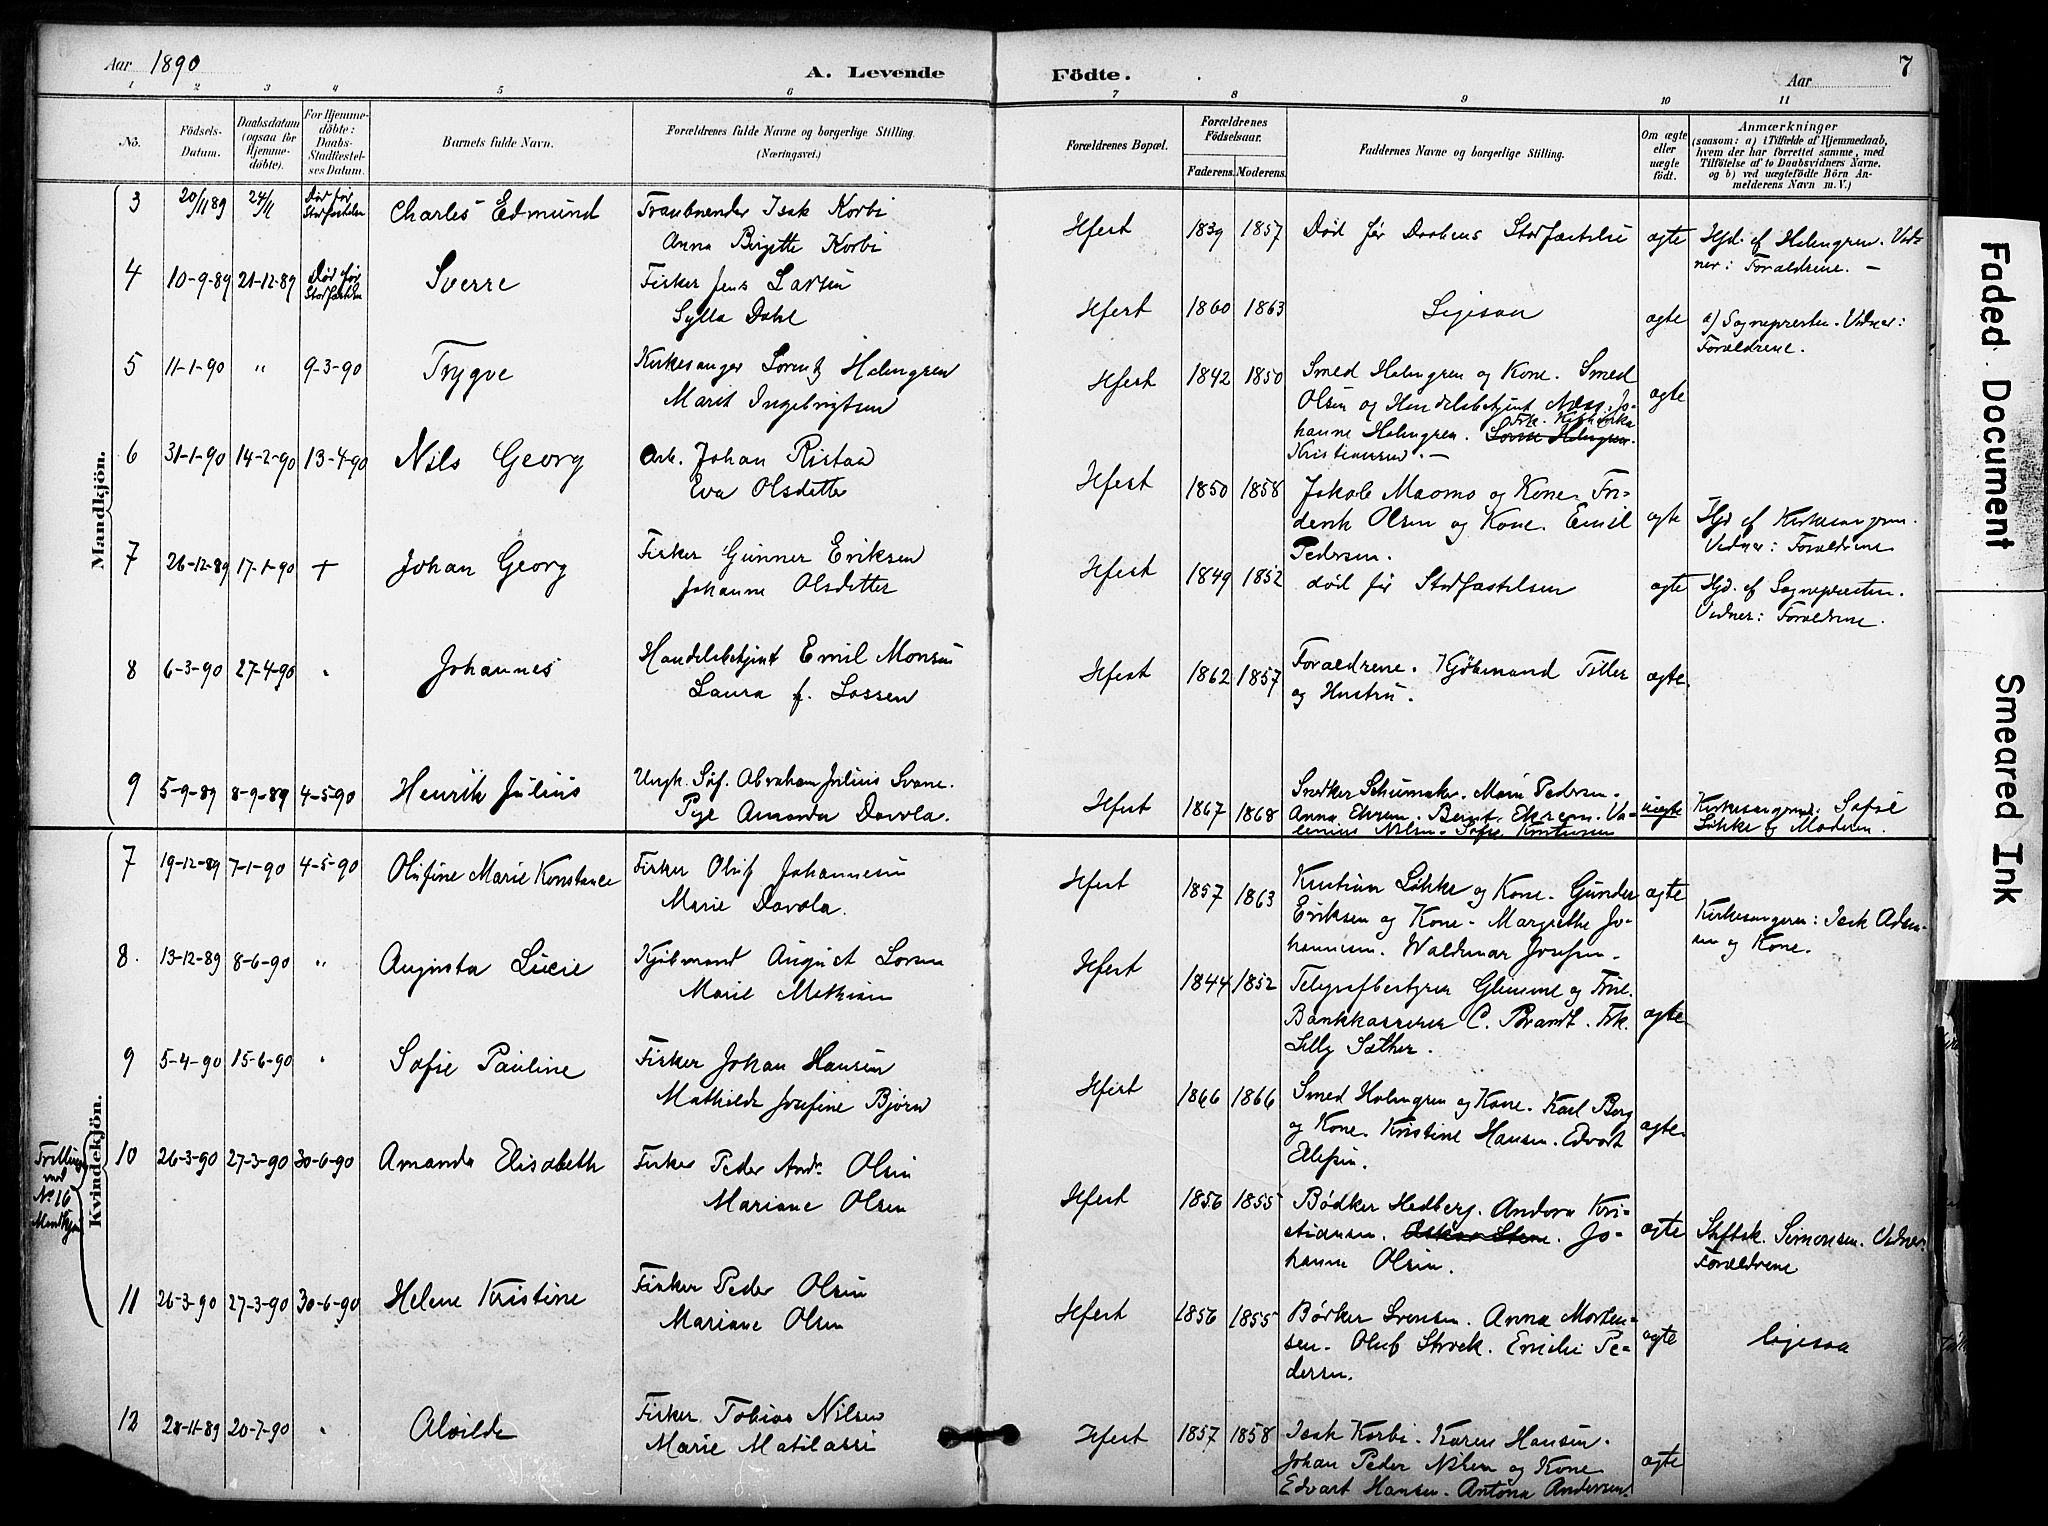 Aar 1890
A. Levende Födte.
Aar
7
1 2 3 4 5 6 7 8 9 10 11
No.
Födsels-Datum.
Daabsdatum (ogsaa for Hjemmedöbte).
For Hjemmedöbte: Daabs-Stadfæstelses Datum.
Barnets fulde Navn.
Forældrenes fulde Navne og borgerlige Stilling.
(Næringsvei.)
Forældrenes Bopæl.
Forældrenes Födselsaar.
Faderens. Moderens.
Faddernes Navne og borgerlige Stilling.
Om ægte eller uægte födt.
Anmærkninger
(saasom: a) i Tilfælde af Hjemmedaab, hvem der har forrettet samme, med Tilföielse af to Daabsvidners Navne. og b) ved uægtefödte Börn Anmelderens Navn m. V.)
Mandkjön.
3 20/11 89 24/11 Död før Stadfæstelse Charles Edmund
Isak Korbi
Anna Birgitte Korbi
Hfest 1839 1857 Død før Daabens Stadfæstelse ægte Hjd. af Holmgren. Vidner: Forældrene. —
4 10-9-89 21-12-89 Död før Stadfæstelse Sverre
Fisker Jens Larsen
Sylla Dahl
Hfest 1860 1863 Ligesaa ægte a) Sognepresten. Vidner: Forældrene.
5 11-1-90 " 9-3-90 Trygve
Kirkesanger Lorentz Holmgren
Marit Ingebrigtsen
Hfest 1842 1850 Smed Holmgren og Kone. Smed
Olsen og Handelsbetjent Næss. Jo-
hanne Holmgren.
Kristiansen. —
ægte
6 31-1-90 14-2-90 13-4-90 Nils Georg
Arb. Johan Ristad
Eva Olsdatter
Hfest 1850 1858 Jakob Maomo og Kone. Fri-
derik Olsen og Kone. Emil
Pedersen.
ægte Hjd af Kirkesangeren.
Vidner: Forældrene
7 26-12-89 17-1-90 + Johan Georg
Fisker Gunner Eriksen
Johanne Olsdatter
Hfest 1849 1852 død før Stadfæstelsen ægte Hjd. af Sognepræsten.
Vidner: Forældrene.
8 6-3-90 27-4-90 " Johannes
Handelsbetjent Emil Monsen
Laura f. Lassen
Hfest 1862 1857 Forældrene. Kjøbmand Tiller
og Hustru.
ægte.
9 5-9-89 8-9-89 4-5-90 Henrik Julius
Ungk. Søf. Abraham Julius Svane.
Pige Amanda Davola.
Hfest 1867 1868 Snedker Schumaker. Marie Pedersen.
Anna Ekrem. Bernt Ekrem. Va-
lenius Nilsen. Sofie Kristiansen
uægte Kirkesangeren: Sofie
Løkke og Moderen.
Kvindekjön.
7 19-12-89 7-1-90 4-5-90 Olufine Marie Konstance
Fisker Oluf Johannesen
Marie Davola.
Hfest 1857 1863 Kristian Løkke og Kone. Gunder
Eriksen og Kone. Margrethe Jo-
hannesen. Waldemar Josefsen.
ægte Kirkesangeren: Isak Adam-
sen og Kone.
8. 13-12-89 8-6-90 " Augusta Lucie
Kjøbmand August Lorsen
Marie Mathisen
Hfest 1844 1852 Telegrafbestyrer Glimme og Frue.
Bankkasserer C. Brandt. Frk.
Silly Sæther.
ægte
9 5-4-90 15-6-90 " Sofie Pauline
Fisker Johan Hansen
Mathilde Josefine Bjørn
Hfest 1866 1866 Smed Holmgren og Kone. Karl Berg
og Kone. Kristine Hansen. Edvart
Ellefsen.
ægte.
Trilling
med
No 16
Mandkjøn
10 26-3-90 27-3-90 30-6-90 Amanda Elisabeth
Fisker Peder Andr. Olsen
Mariane Olsen
Hfest 1856 1855 Bødker Hedberg. Andora Kri-
stiansen. Oskar Stene. Jo-
hanne Olsen.
ægte Stiftsk. Simonsen. Vidner:
Forældrene
11 26-3-90 27-3-90 30-6-90 Helene Kristine
Fisker Peder Olsen
Mariane Olsen
Hfest 1856 1855 Bødker Svensen. Anna Morten-
sen. Oluf Strøk. Emilie Pe-
dersen.
ægte Ligesaa
12 28-11-89 20-7-90 " Alvilde
Fisker Tobias Nilsen
Marie Matilassi
Hfest 1857 1858 Isak Korbi. Karen Hansen.
Johan Peder Nilsen og Kone
Edvart Hansen. Antona Andersen.
ægte
Faded Document
Smeared Ink